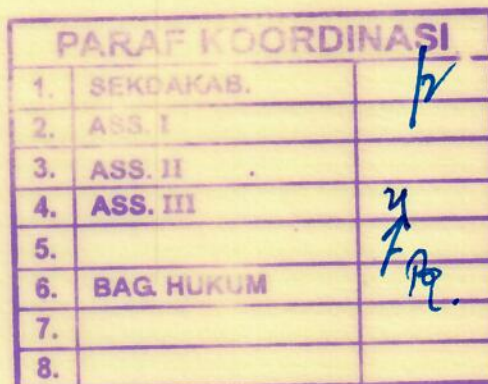 PARAF KOORDINASI
1. SEKDAKAB.
2. ASS. I
3. ASS. II
4. ASS. III
5.
6. BAG. HUKUM
7.
8.